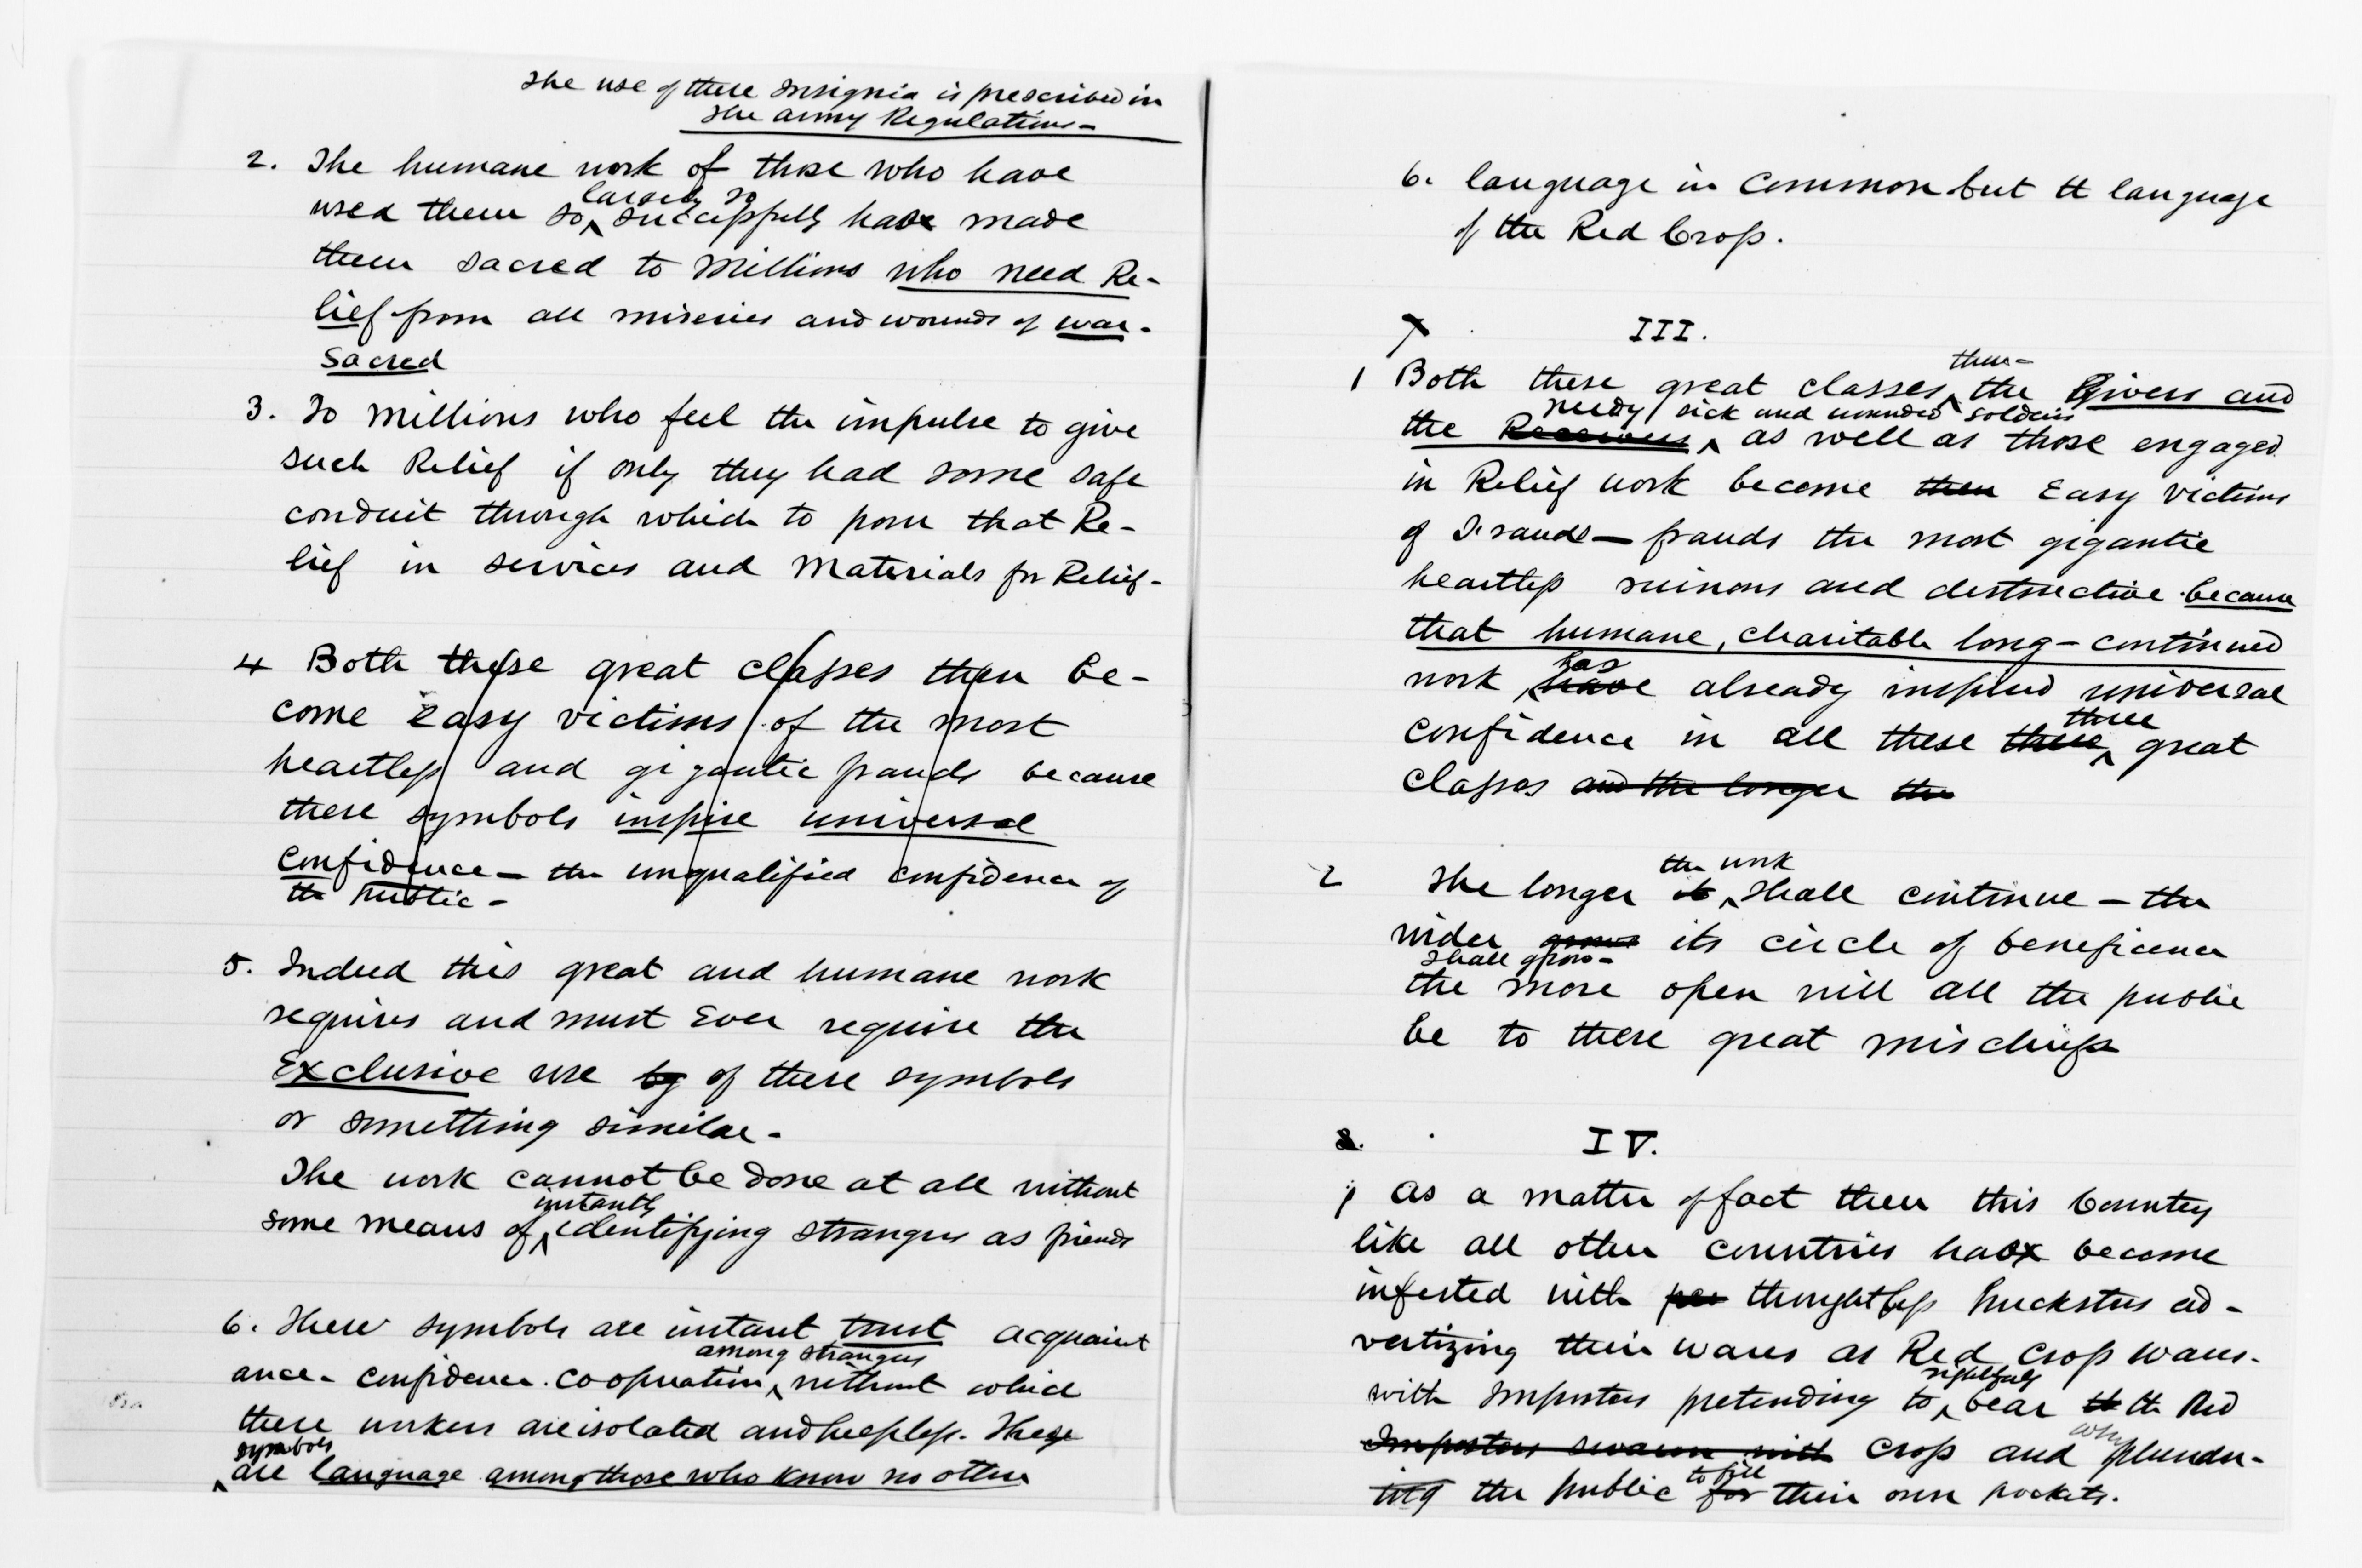 The use of these Insignia is prescribed in
The Army Regulations -
2. The humane work of those who have
largely so
used them so successfully have made
them sacred to Millions who need Re-
lief from all miseries and wounds of war -
Sacred
3. To Millions who feel the impulse to give
such Relief if only they had some safe
conduit through which to pour that Re-
lief in services and Materials for Relief -
4 Both these great classes then be-
come Easy victims of the most
heartless and gigantic frauds because
these symbols inspire universal
confidence - the unqualified confidence of
the Public -
5. Indeed this great and humane work
requires and must Ever require the
Exclusive use by of these symbols
or something similar -
The work cannot be done at all without
instantly
some means of identifying strangers as friends
6. These symbols are instant trust acquaint
among strangers
ance - confidence. cooperation, without which
these workers are isolated and helpless. These
symbols
are language among those who know no other
6. language in Common but the language
of the Red Cross.
III.
then -
1 Both these great classes, the Givers and
needy sick and wounded soldiers
the Receivers as well as those engaged
in Relief work become then Easy victims
of Frauds - frauds the most gigantic
heartless ruinous and destructive because
that humane, charitable long - continued
has
work, have already inspired universal
three
confidence in all these three great
classes and the longer the
the work
2 The longer it shall continue - the
wider grows its circle of beneficence
shall grow -
the more open will all the public
be to these great mischiefs
2. IV.
1 As a matter of fact then this Country
like all other countries has become
infested with per thoughtless hucksters ad-
vertizing their wares as Red Cross wares -
rightfully
with Imposters pretending to bear the Red
why
Impostors swarm with Cross and plunder-
to fill
ing the public for their own pockets.